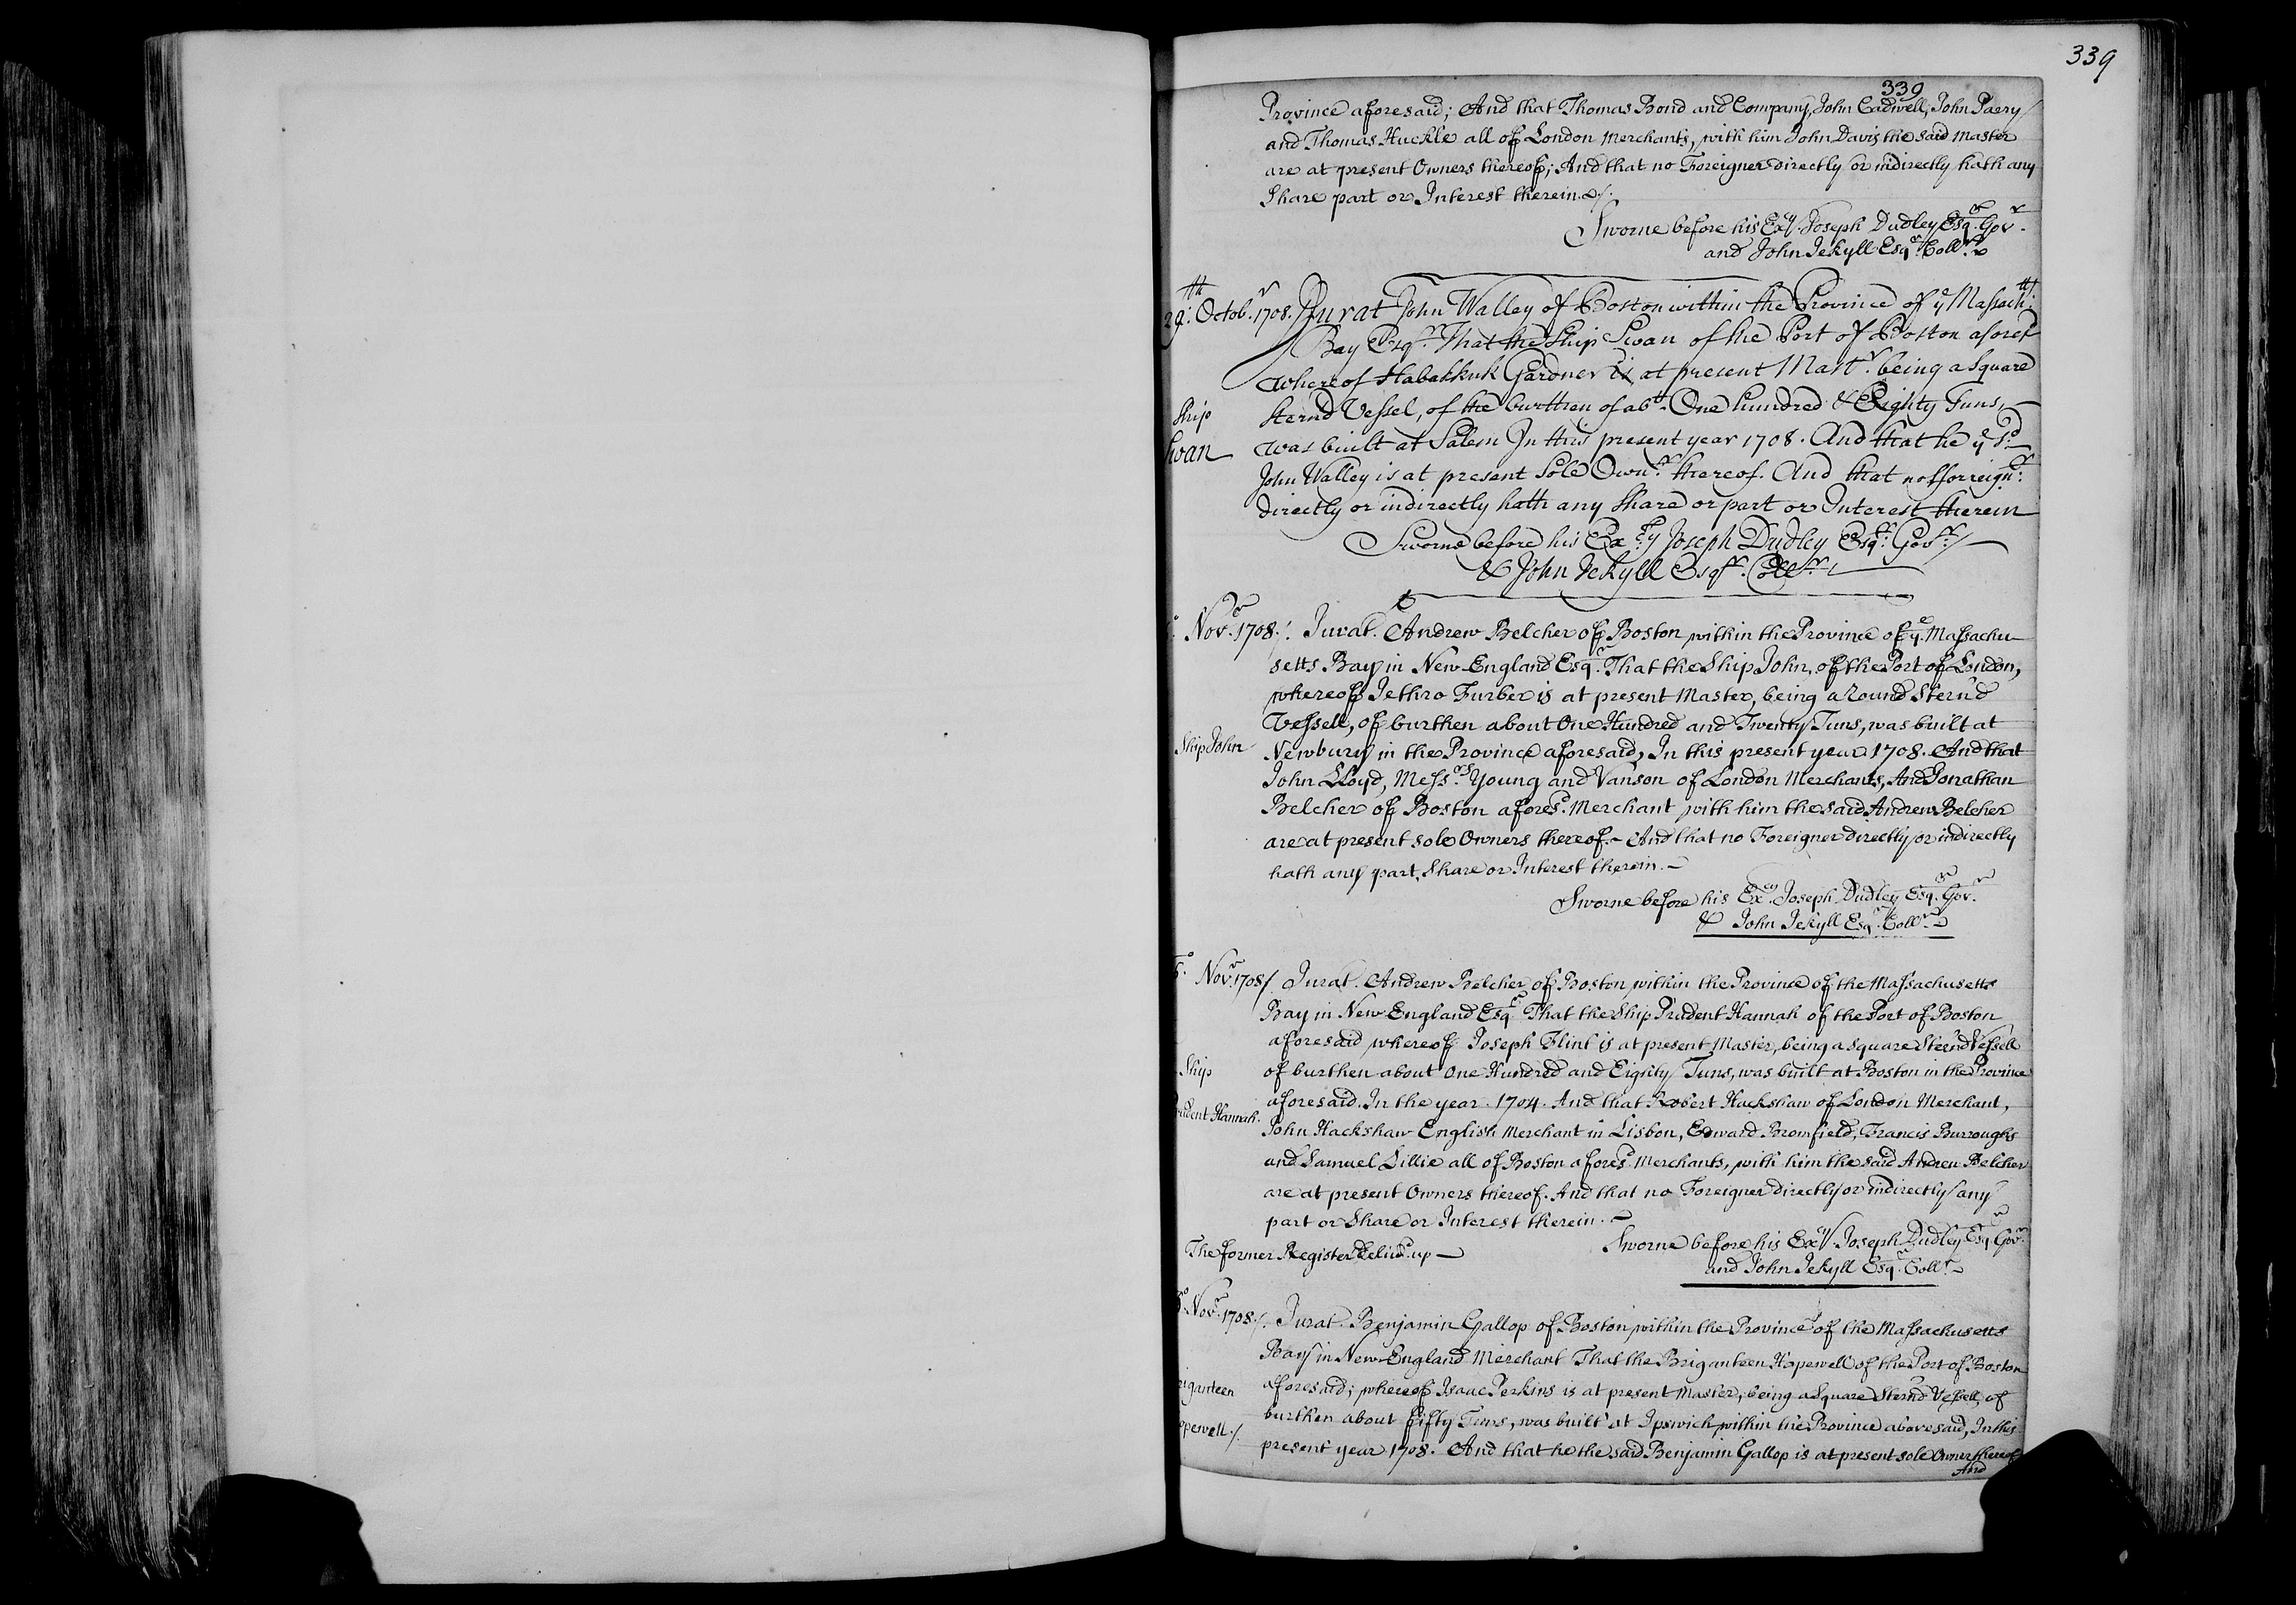 339
339
Province aforesaid; And that Thomas Bond and Company, John Cadwell, John Paery
and Thomas Huckle all of London Merchants, with him John Davis the said Master
are at present Owners thereof; And that no Foreigner directly or indirectly hath any
Share part or Interest therein./.
Sworne before his Excy. Joseph Dudley Esqr. Govr.
and John Jekyll Esqr. Collr.
29th. Octobr. 1708. Jurat John Walley of Boston within the Province of ye Massachtts.
Bay Esqr. That the Ship Swan of the Port of Boston aforesd
whereof Habakkuk Gardner is at present Mastr. being a Square
Ship
Sternd Vessel, of the burthen of abt. One hundred & Eighty Tuns,
wan
was built at Salem In this present year 1708. And that he ye sd.
John Walley is at present Sole Ownr. thereof. And that no fforreignr.
directly or indirectly hath any Share or part or Interest therein
Sworne before his Excy Joseph Dudley Esqr. Govr.
& John Jekyll Esqr. Collr.
Novr. 1708/. Jurat. Andrew Belcher of Boston within the Province of ye. Massachu-
setts Bay in New England Esqr. That the Ship John, of the Port of London,
whereof Jethro Furber is at present Master, being a Round Stern'd
Vessell, of burthen about One Hundred and Twenty Tuns, was built at
Ship John
Newbury in the Province aforesaid, In this present year 1708. And that
John Lloyd, Messrs. Young and Vanson of London Merchants, And Jonathan
Belcher of Boston aforesd. Merchant with him the said Andrew Belcher
are at present sole Owners thereof.- And that no Foreigner directly or indirectly
hath any part, Share or Interest therein.-
Sworne before his Excy. Joseph Dudley Esqr. Govr.
& John Jekyll Esqr. Collr.
Novr. 1708/. Jurat. Andrew Belcher of Boston within the Province of the Massachusetts
Bay in New England Esqr That the Ship Prudent Hannah of the Port of Boston
aforesaid whereof Joseph Flint is at present Master, being a square Stern'd Vessell
Ship
of burthen about One Hundred and Eighty Tuns, was built at Boston in the Province
udent Hannah.
aforesaid. In the year 1704. And that Robert Hackshaw of London Merchant,
John Hackshaw English Merchant in Lisbon, Edward Bromfield, Francis Burroughs
and Samuel Lillie all of Boston aforesd. Merchants, with him the said Andrew Belcher
are at present Owners thereof. And that no Foreigner directly or indirectly any
part or Share or Interest therein.-
The former Register Deliv'd. up -
Sworne before his Excy. Joseph Dudley Esqr Govr.
and John Jekyll Esqr. Collr.
Novr. 1708/. Jurat. Benjamin Gallop of Boston within the Province of the Massachusetts
Bay in New England Merchant That the Briganteen Hopewell of the Port of Boston
iganteen
aforesaid; whereof Isaac Perkins is at present Master, being a Square Stern'd Vessell, of
burthen about fifty Tuns, was built at Ipswich within the Province abovesaid, In this
pewell./.
present year 1708. And that he the said Benjamin Gallop is at present sole Owner thereof
And